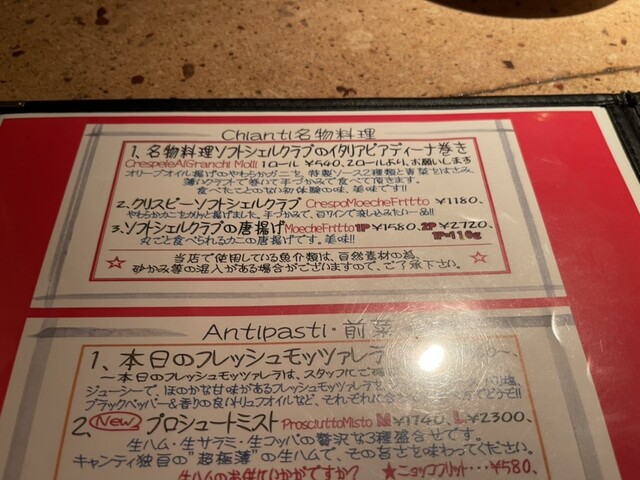 Chianti名物料理
1、名物料理ソフトシェルクラブのイタリアピアディーナ巻き
CrespeleAlGranchi Molli 1ロール ¥540、2ロールより、お願いします
オリーブオイル揚げのやわらかガニを、特製ソース2種類と青菜をはさみ、
薄いクラフトで巻いて手づかみで食べて頂きます。
食べたことのない初体験の味、美味です!!
2、クリスピーソフトシェルクラブ CrespoMoecheFritto ¥1180、
やわらかカニをカリッと揚げました。手づかみで、白ワインで流し込みたい一品!!
3、ソフトシェルクラブの唐揚げ MoecheFritto 1P ¥1580、2P ¥2720、
丸ごと食べられるカニの唐揚げです。美味!! 1P=110g
☆ 当店で使用している魚介類は、自然素材の為、 ☆
砂かみ等の混入がある場合がございますので、ご了承下さい。
Antipasti・前菜
1、本日のフレッシュモッツァレラ
〜本日のフレッシュモッツァレラは、スタッフにご
ジューシーで、ほのかな甘味があるフレッシュモッツァレラを どうぞ!!
ブラックペッパー&香りの良いトリュフオイルなど、それぞれに
2、New プロシュートミスト ProsciuttoMisto M ¥1740、L ¥2300、
生ハム・生サラミ・生コッパの贅沢な3種盛合せです。
キャンティ独自の"超極薄"の生ハムで、その旨さを味わってください。
生ハムのお供にいかがですか? ★ニョッコフリット・・・¥580、